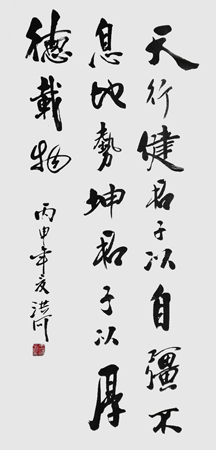 天行健君子以自彊不
息地勢坤君子以厚
德載物
丙申年夏洪